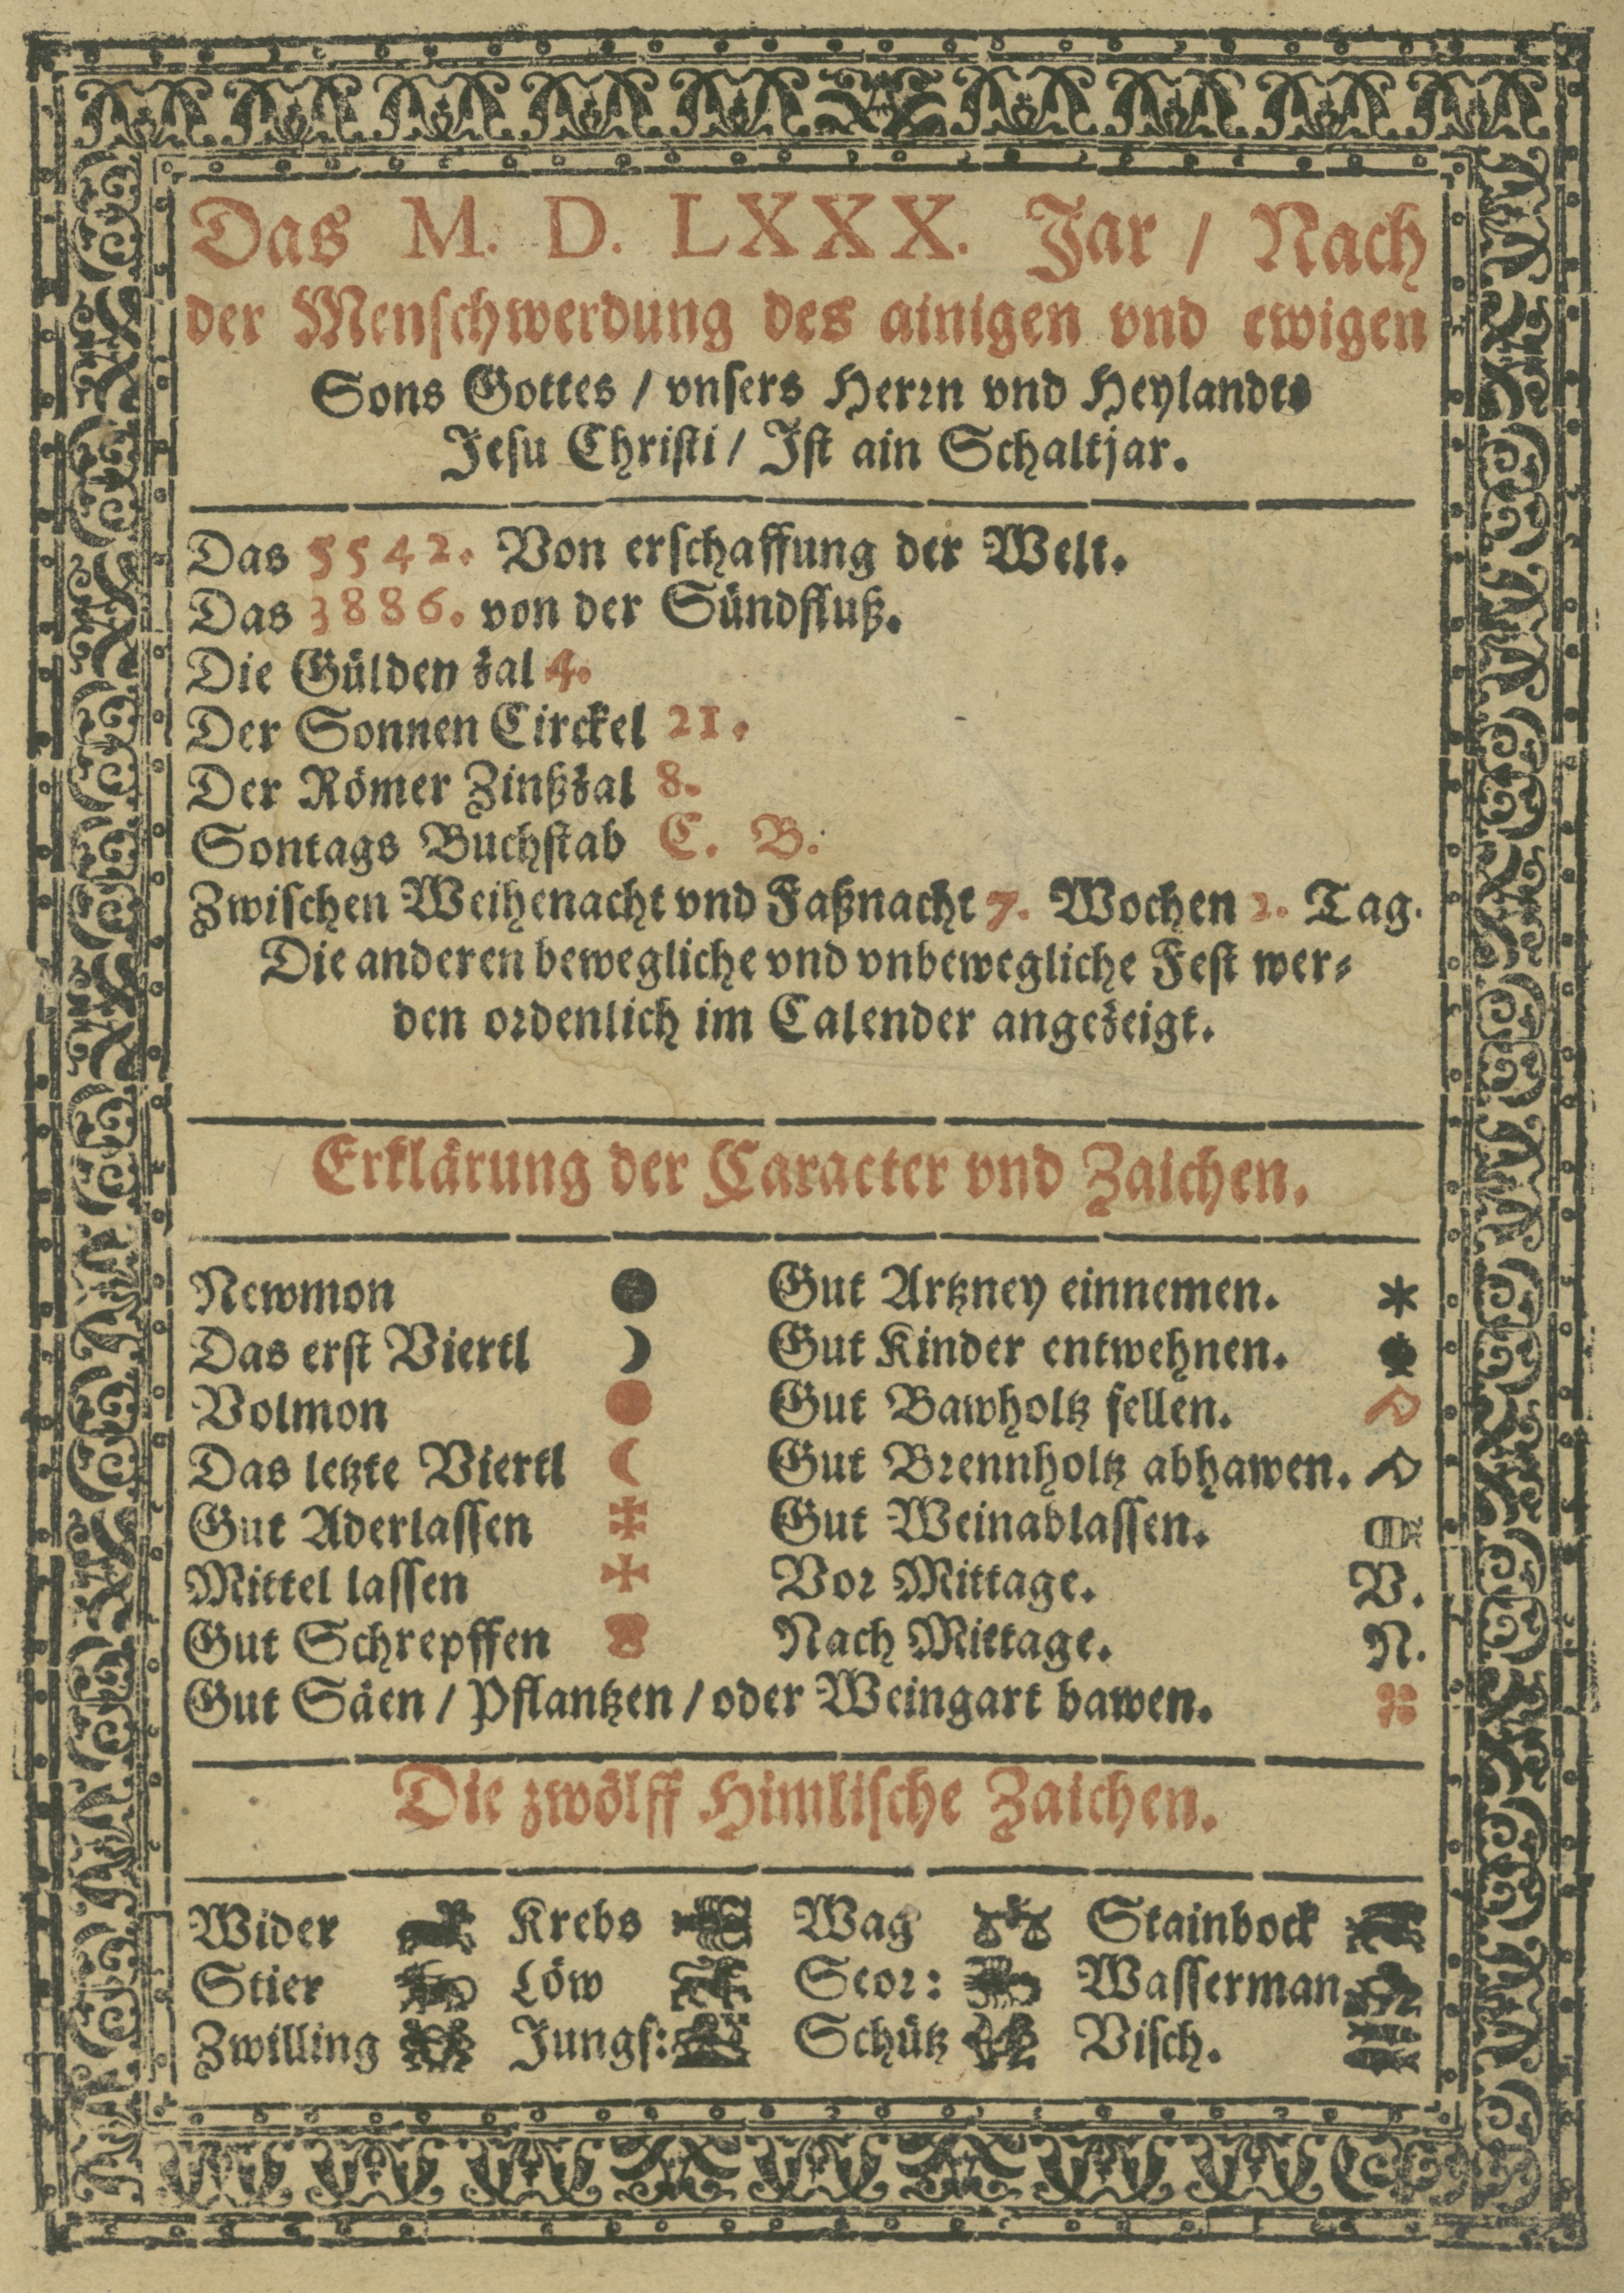 Das M. D. LXXX. Jar / Nach
der Menschwerdung des ainigen vnd ewigen
Sons Gottes / vnsers Herrn vnd Heylandts
Jesu Christi / Ist ain Schaltjar.
Das 5542. Von erschaffung der Welt.
Das 3886. von der Sündfluß.
Die Gülden zal 4.
Der Sonnen Circkel 21.
Der Römer Zinßzal 8.
Sontags Buchstab C. B.
Zwischen Weihenacht vnd Faßnacht 7. Wochen 2. Tag.
Die anderen bewegliche vnd vnbewegliche Fest wer-
den ordenlich im Calender angezeigt.
Erklärung der Caracter vnd Zaichen.
Newmon ● Gut Artzney einnemen. *
Das erst Viertl ☽ Gut Kinder entwehnen.
Volmon Gut Bawholtz fellen.
Das letzte Viertl ☾ Gut Brennholtz abhawen.
Gut Aderlassen Gut Weinablassen.
Mittel lassen Vor Mittage. V.
Gut Schrepffen Nach Mittage. N.
Gut Säen / Pflantzen / oder Weingart bawen.
Die zwölff Himlische Zaichen.
Wider Krebs Wag Stainbock
Stier Löw Scor: Wasserman
Zwilling Jungf: Schütz Visch.